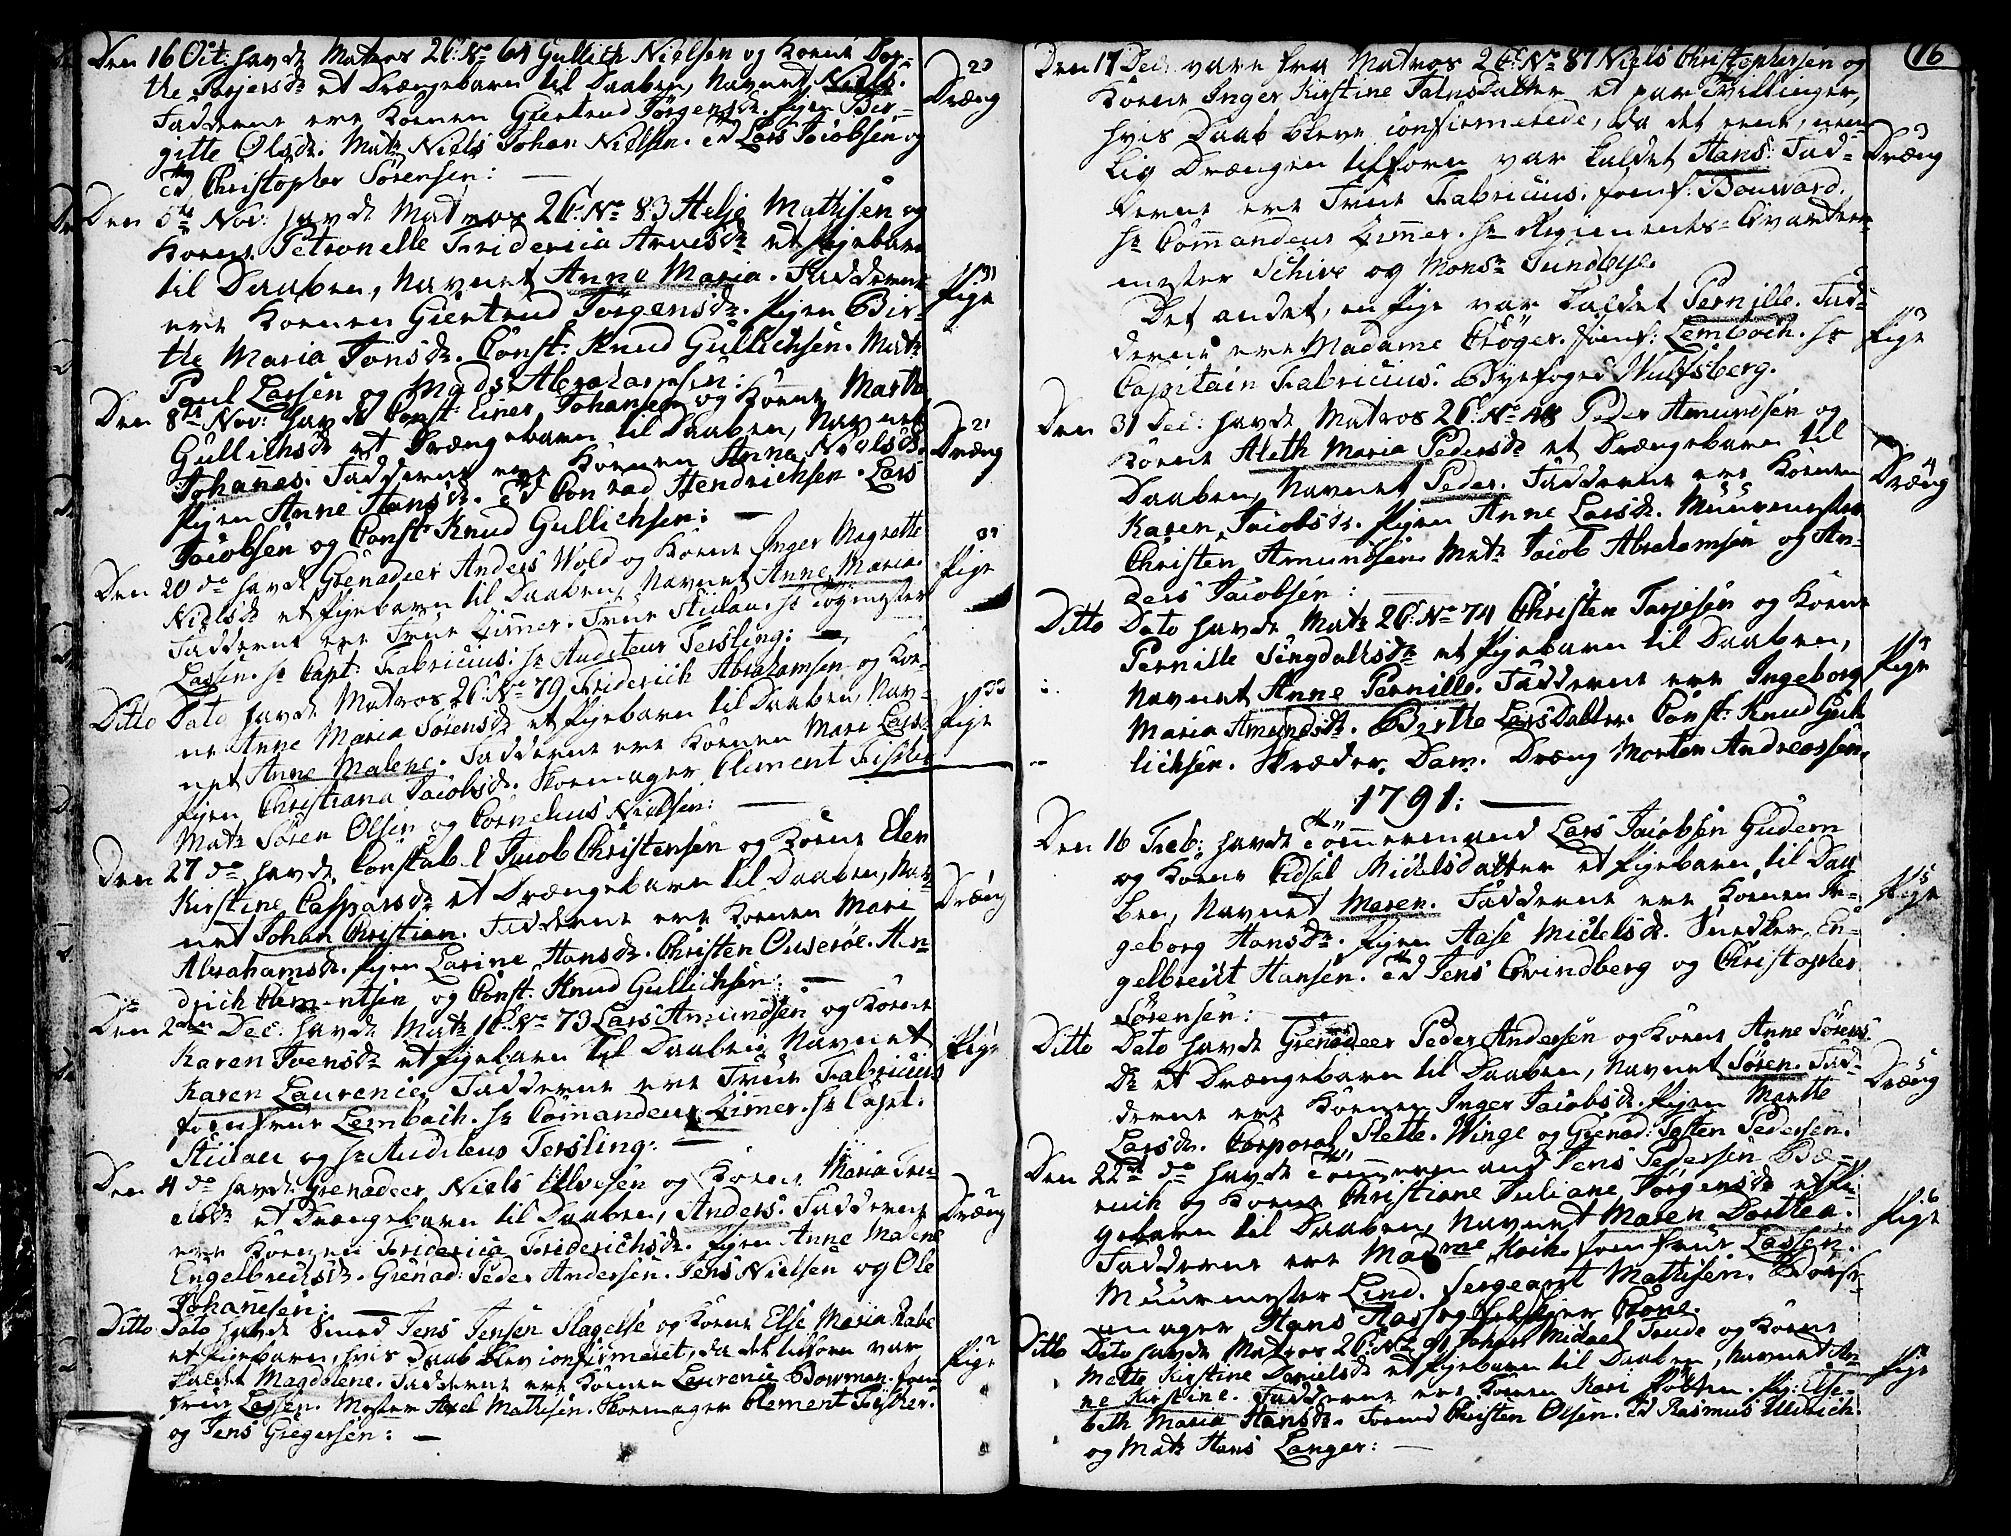 Den 16 Oct: havde Matros 2 C. No 64 Gullich Nielsen og Koene Dor-
the Torjersdr et Drængebarn til Daaben, Navnet Niels.
Fadderne ere Konen Giertrud Jørgensdr. Pigen Bir-
gitte Olsdr. Matr Niels Johan Nielsen. Lars Jacobsen og
Christopher Sørensen:
20
Dræng
Den 5te Nov: havde Matros 2 C. No 83 Helje Mathisen og
Koene Petronelle Fridericia Arvesdr et Pigebarn
til Daaben, Navnet Anne Maria. Fadderne
ere Konen Giertrud Jørgensdr. Pigen Bir-
the Maria Jonsdr. Const: Knud Gullichsen. Matr
Poul Larsen og Mads Abrahamsen:
31
Pige
Den 8de Nov: havde Const: Einer Johansen og Koene Marthe
Gullichsdr et Drængebarn til Daaben, Navnet
Johannes. Fadderne ere Konen Anna Nielsdr.
Pigen Anne Hansdr. Conrad Hendrichsen. Lars
Jacobsen og Const: Knud Gullichsen:
21
Dræng
Den 20 do havde Grenadeer Anders Wold og Koene Inger Magrethe
Nielsdr et Pigebarn til Daaben, Navnet Anne Maria.
Fadderne ere Frue Zimer. Frue Stidau. Hr Tøymester
Lassen. Hr Capt: Fabricius. Hr Auditeur Tersling:
32
Pige
Ditto Dato havde Matros 2 C. No 79 Friderich Abrahamsen og Koe-
ne Anne Maria Sørensdr et Pigebarn til Daaben, Nav-
net Anne Malene. Fadderne ere Konen Mari Larsdr
Pigen Christiana Jacobsdr. Skomager Clement Fisker
Matr Søren Olsen og Cornelius Nielsen:
33
Pige
Den 27 do havde Constabel Jacob Christensen og Koene Elen
Kirstine Caspersdr et Drængebarn til Daaben, Nav-
net Johan Christian. Fadderne ere Konen Mari
Abrahamsdr. Pigen Larine Hansdr. Christen Ouserøe. Hen-
drich Clementsen og Const: Knud Gullichsen:
Dræng
Den 2den Dec: havde Matr 1 C. No 73 Lars Amundsen og Koene
Karen Ivensdr et Pigebarn til Daaben, Navnet
Karen Laurenie. Fadderne ere Frue Fabricius
Jomfrue Lembach. Hr Comandeur Zimer. Hr Capt.
Stidau og Hr Auditeur Tersling:
1
Pige
Den 4 do havde Grenadeer Niels Ellevsen og Koene Maria Fri-
et Drængebarn til Daaben, Anders. Fadderne
ere Konen Fridericia Friderichsdr. Pigen Anne Malene
Engelbrechtsdr. Grenad: Peder Andersen. Jens Nielsen og Ole
Johanesen:
2
Dræng
Ditto Dato havde Smed Jens Jensen Slagelse og Koene Else Maria Rabe
et Pigebarn, hvis Daab blev confirmeret, da det tilforn var
kaldet Magdelene. Fadderne ere Konen Laurenie Bowman. Jom-
frue Lassen. Mester Axel Mathisen. Skomager Clement Fisker.
og Jens Gregersen:
2
Pige
16
Den 17 Dec: vare fra Matros 2 C. No 87 Niels Christophersen og
Koene Inger Kirstine Falnsdatter et par Tvillinger,
hvis Daab bleve confirmerede, da det eene, nem-
lig Drængen tilforn var kaldet Hans. Fad-
derne ere Frue Fabricius. Jomf: Bouward.
Hr Commandeur Zimer. Hr Regiments-Qvarteer-
mester Schive og Monsr Sundbye.
3
Dræng
Det andet, en Pige var kaldet Pernille. Fad-
derne ere Madame Crøger. Jomf: Lembach. Hr
Capitain Fabricius. Byefoged Wulfsberg.
3
Pige
Den 31 Dec: havde Matros 2 C. No Peder Amundsen og
Koene Aleth Maria Pedersdr et Drængebarn til
Daaben, Navnet Peder. Fadderne ere Konen
Karen Jacobsdr. Pigen Anne Larsdr. Muurmester
Christen Amundsen. Matr Jacob Abrahamsen og An-
ders Jacobsen:
4
Dræng
Ditto Dato havde Matr 2 C. No 74 Christen Torjesen og Koene
Pernille Singdallsdr et Pigebarn til Daaben,
Navnet Anne Pernille. Fadderne ere Ingeborg
Maria Amundsdr. Berthe Larsdatter. Const: Knud Gul-
lichsen. Skræder Dam. Dræng Morten Andreassen.
4
Pige
1791:
Den 16 Feb: havde Tømmermand Lars Jacobsen Gudem
og Koene Edsel Michelsdatter et Pigebarn til Daa-
ben, Navnet Maren. Fadderne ere Konen In-
geborg Hansdr. Pigen Aase Michelsdr. Snedker En-
gelbrecht Hansen. Jens Qvindberg og Christopher
Sørensen:
5
Pige
Ditto Dato havde Grenadeer Peder Andersen og Koene Anne Sørens-
dr et Drængebarn til Daaben, Navnet Søren. Fad-
derne ere Konen Inger Jacobsdr. Pigen Marthe
Larsdr. Corporal Slette. Winge og Grenad: Josten Pedersen.
5
Dræng
Den 22de do havde Tømmermand Jens Pedersen Bæ-
revich og Koene Christiane Juliane Jørgensdr et Pi-
gebarn til Daaben, Navnet Maren Dorthea.
Fadderne ere Madme Koch. Jomfrue Lassen.
Muurmester Lind. Sergeant Mathisen. Børst-
mager Hans Hass og Crone.
6
Pige
Ditto Dato havde Matros 2 C. No 91 Johan Michael Trude og Koene
Mette Kirstine Danielsdr et Pigebarn til Daaben, Navnet An-
ne Kirstine. Fadderne ere Konen Kari Pobsen. Pig: Else-
beth Maria Hansdr. Svend Christen Olsen. Rasmus Ulrich.
og Matr Hans Langer:
7
Pige